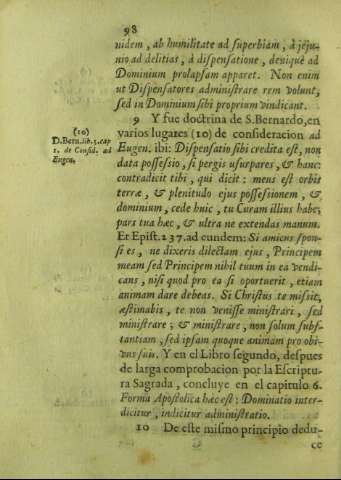 98
nidem, ab humilitate ad superbiam, à jeju-
nio ad delitias, à dispensatione, denique ad
Dominium prolapsam apparet. Non enim
ut Dispensatores administrare rem volunt,
sed in Dominium sibi proprium vindicant.
9 Y fue doctrina de S. Bernardo, en
(10)
D. Bern. lib. 3. cap
1. de Consid. ad
Eugen.
varios lugares (10) de consideracion ad
Eugen. ibi: Dispensatio sibi credita est, non
data possessio, si pergis usurpares, & hanc:
contradicit tibi, qui dicit: meus est orbis
terræ, & plenitudo ejus possessionem, &
dominium, cede huic, tu Curam illius habe,
pars tua hæc, & ultra ne extendas manum.
Et Epist. 237. ad eundem: Si amicus spon-
si es, ne dixeris dilectam ejus, Principem
meam sed Principem nihil tuum in ea vendi-
cans, nisi quod pro ea si oportuerit, etiam
animam dare debeas. Si Christus te missit,
æstimabis, te non venisse ministrari, sed
ministrare; & ministrare, non solum subs-
tantiam, sed ipsam quoque animam pro obi-
vus suis. Y en el Libro segundo, despues
de larga comprobacion por la Escriptu-
ra Sagrada, concluye en el capitulo 6.
Forma Apostolica hæc est: Dominatio inter-
dicitur, indicitur administratio.
10 De este mismo principio dedu-
ce